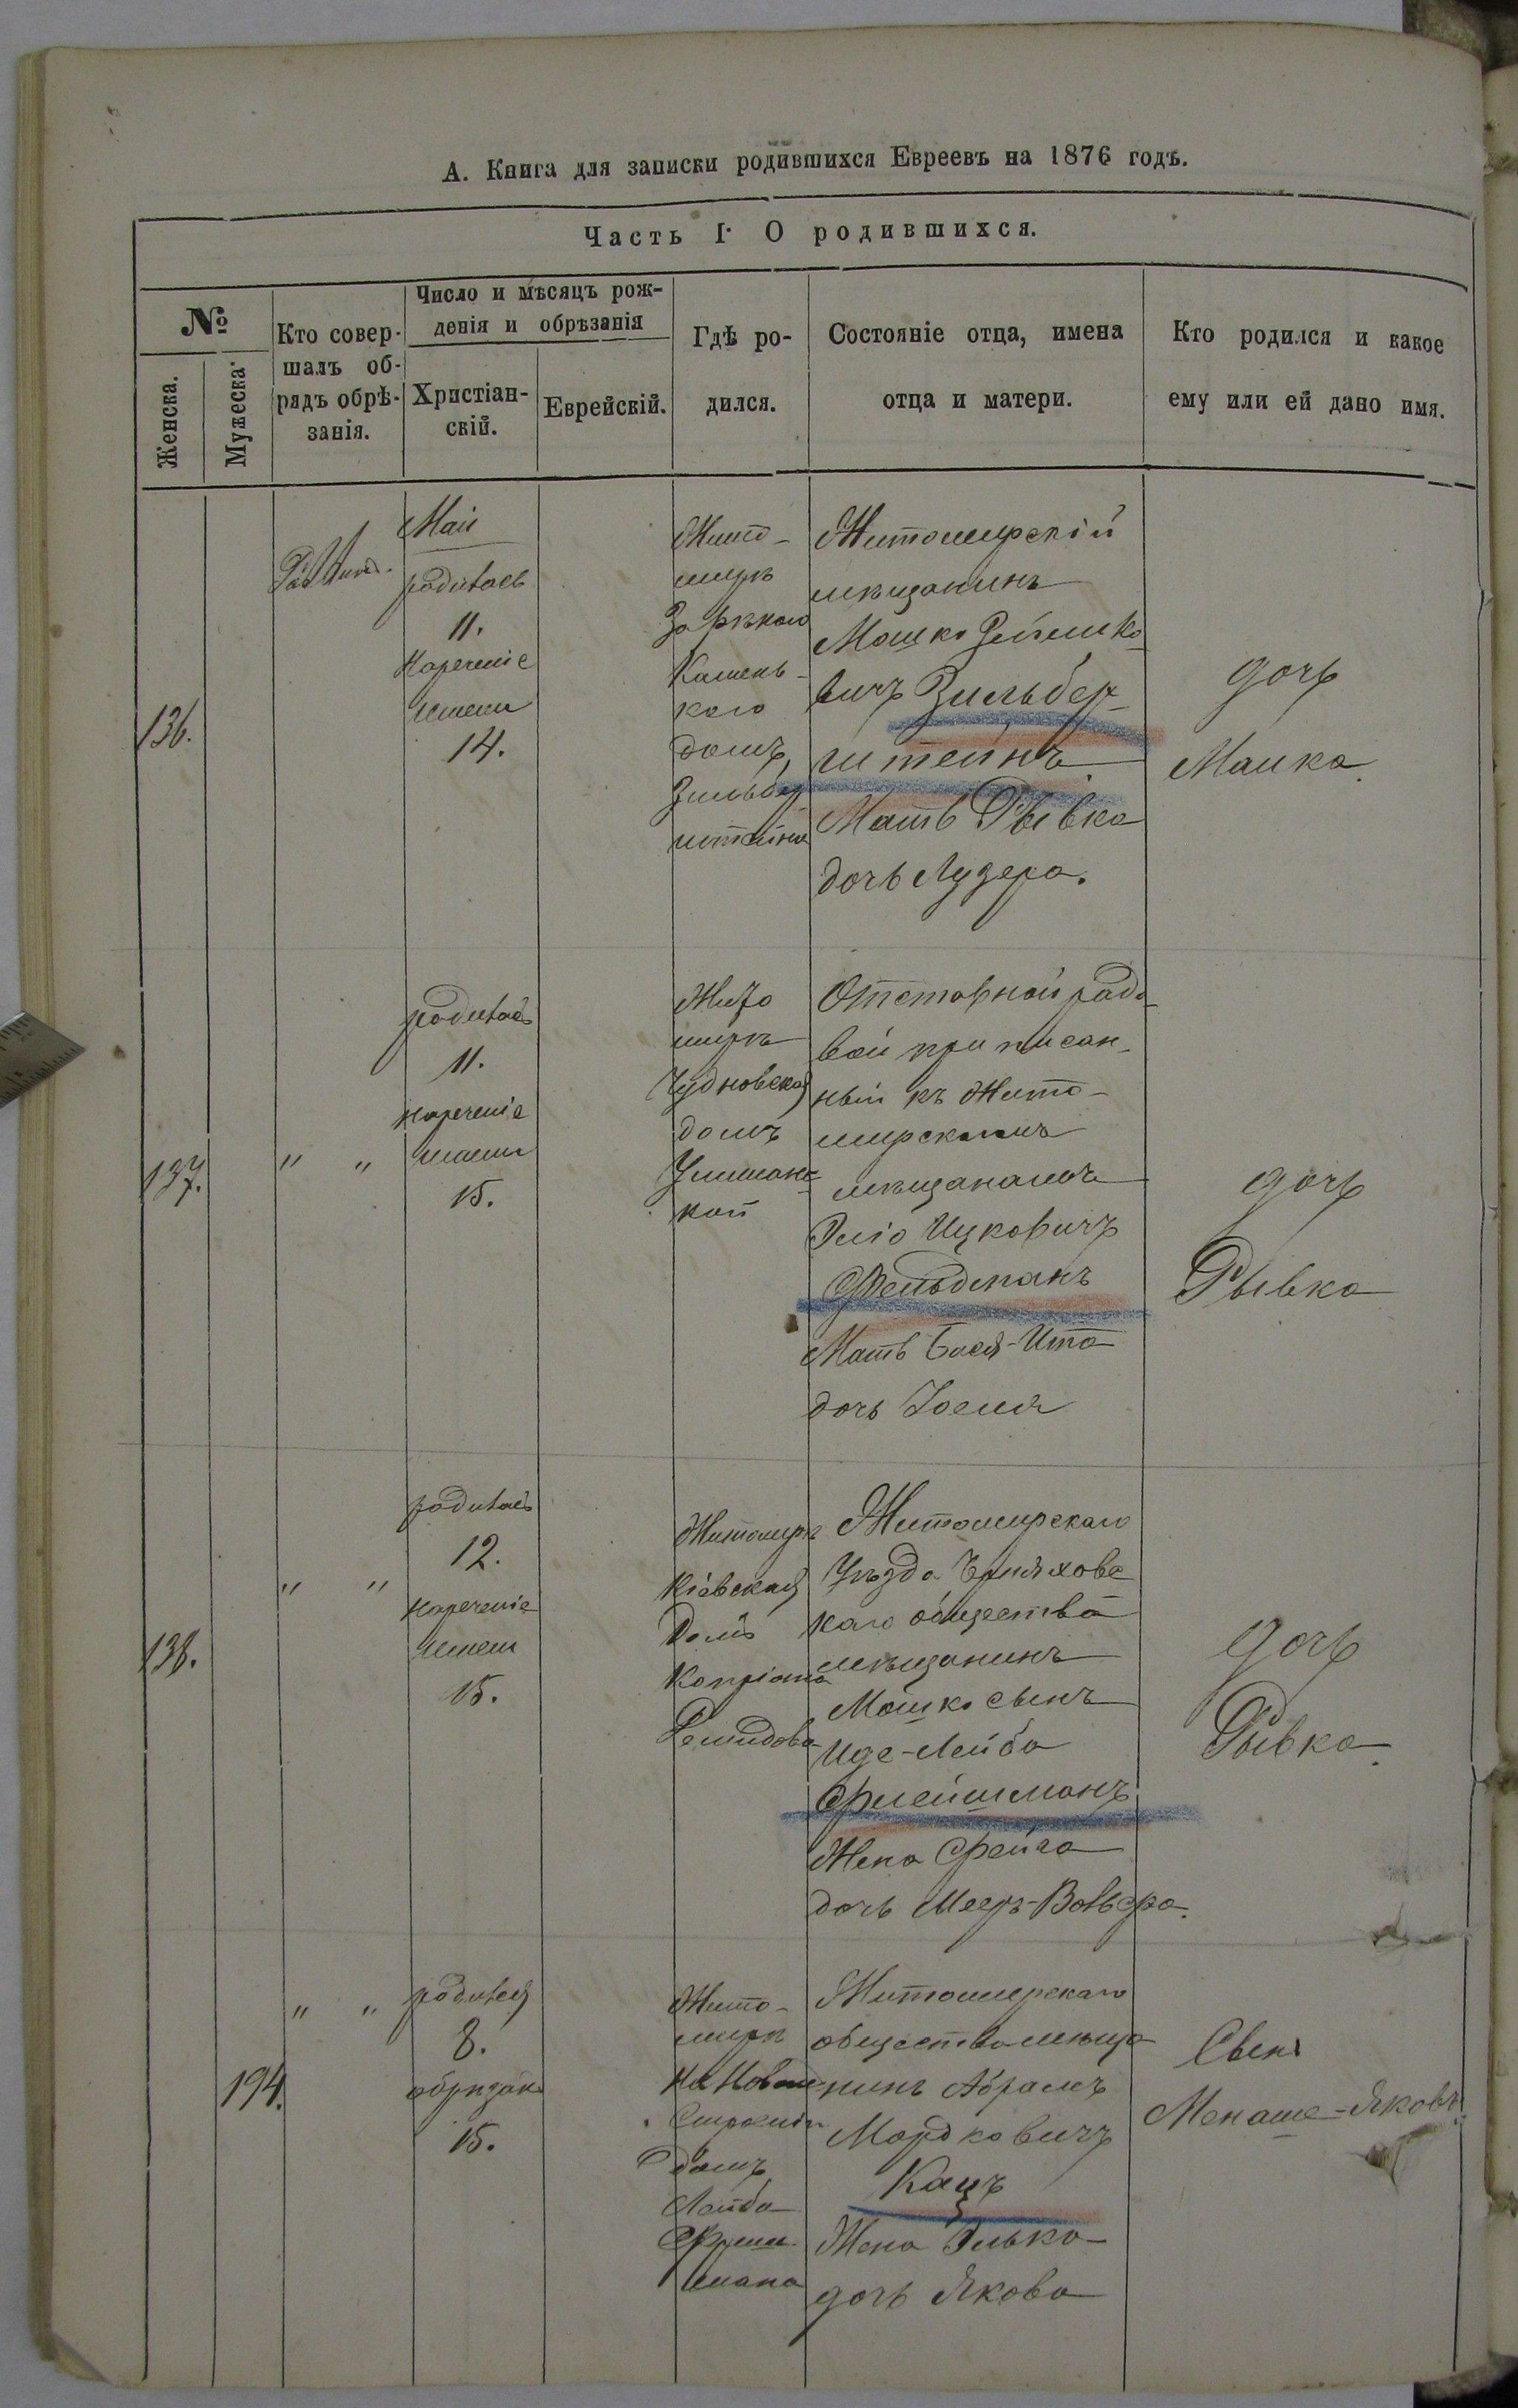 А. Книга для записки родившихся Евреевъ на 1876 годъ.
Часть I. О родившихся.
№
Женска.
Мужеска.
Кто совер-
шалъ об-
рядъ обрѣ-
занія.
Число и мѣсяцъ рож-
денія и обрѣзанія
Христіан-
скій.
Еврейскій.
Гдѣ ро-
дился.
Состояніе отца, имена
отца и матери.
Кто родился и какое
ему или ей дано имя.
136.
Май
родилась
11.
Нареченіе
имени
14.
Жито-
миръ
Камень-
каго
домъ
Зильбер
штейна
Житомирскій
мѣщанинъ
Мошко
вичъ Зильбер-
штейнъ
Мать Рывка
дочь Лузера.
дочь
Малка
137.
" "
родилась
11.
нареченіе
имени
15.
Жито
миръ
Чудновская
домъ
кой
Отставной рядо
вой приписан-
ный къ Жито-
мирскимъ
мѣщанамъ
Эліо Ицковичъ
Фельдманъ
Мать Бася-Ита
дочь Іоеля
дочь
Рывка
138.
" "
родилась
12.
нареченіе
имени
15.
Житомиръ
Кіевская
домъ
Демидова
Житомирскаго
Уѣзда Черняховс
каго общества
мѣщанинъ
Мошко сынъ
Иде-Лейба
Флейшманъ
Жена Фейга
дочь Мееръ-Вольфа.
дочь
Рывка
194.
" "
родился
8.
обрѣзанъ
15.
Жито-
миръ
домъ
Лейба
мана
Житомирскаго
общества мѣща
нинъ Абрамъ
Мордковичъ
Кацъ
Жена Элька
дочь Якова
Сынъ
Менаше-Яковъ